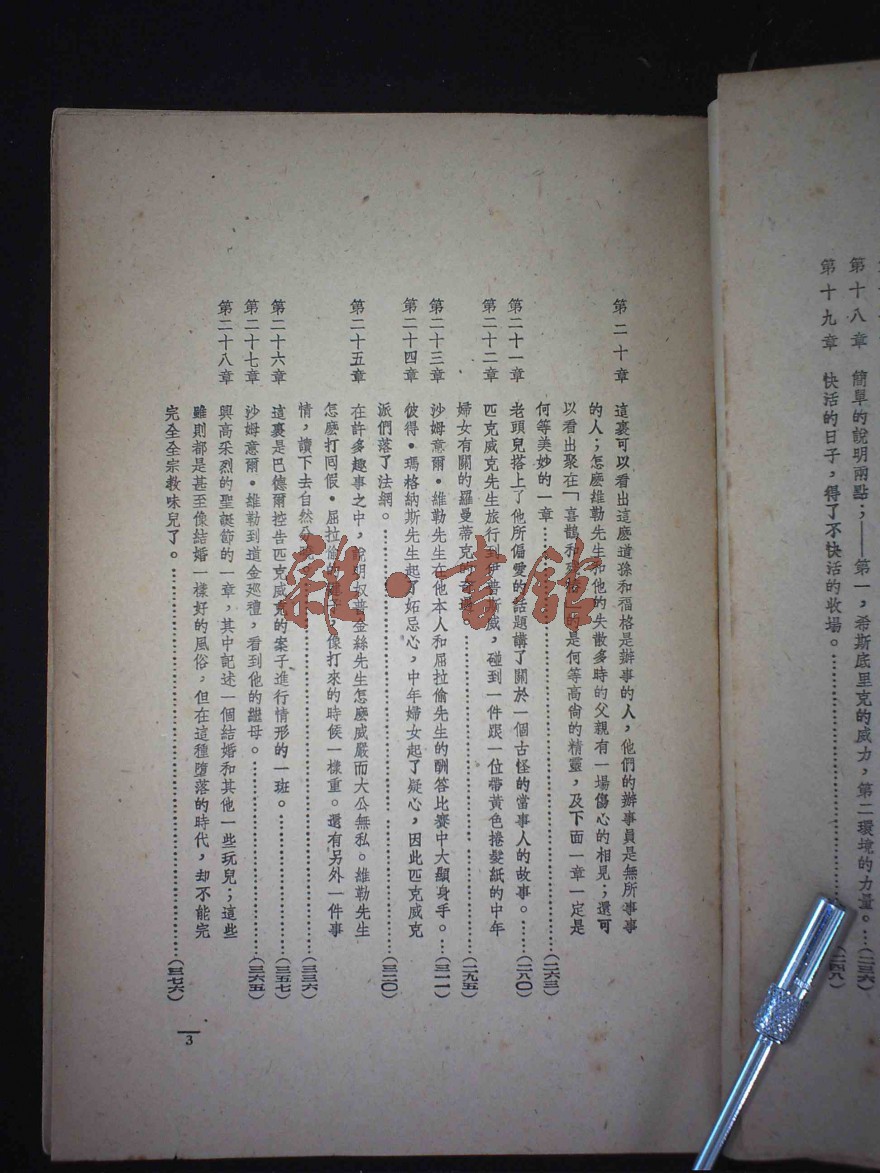 第十八章 簡單的說明兩點；——第一，希斯底里克的威力，第二環境的力量。…（二三六）
第十九章 快活的日子，得了不快活的收場。…（二四八）
第二十章 這裏可以看出這麽道孫和福格是辦事的人，他們的辦事員是無所事事
的人；怎麽維勒先生和他的失散多時的父親有一場傷心的相見；還可
以看出聚在「喜鵲和 的是何等高尙的精靈，及下面一章一定是
何等美妙的一章…（二六三）
第二十一章 老頭兒搭上了他所偏愛的話題講了關於一個古怪的當事人的故事。…（二八〇）
第二十二章 匹克威克先生旅行到伊普斯威，碰到一件跟一位帶黃色捲髮紙的中年
婦女有關的羅曼蒂克的 …（二九五）
第二十三章 沙姆意爾·維勒先生在他本人和屈拉倫先生的酬答比賽中大顯身手。…（三一一）
第二十四章 彼得·瑪格納斯先生起了妬忌心，中年婦女起了疑心，因此匹克威克
派們落了法網。…（三二〇）
第二十五章 在許多趣事之中，說明奴普金絲先生怎麽威嚴而大公無私。維勒先生
怎麽打囘假·屈拉倫的 像打來的時候一樣重。還有另外一件事
情，讀下去自然分 …（三三六）
第二十六章 這裏是巴德爾控告匹克威克的案子進行情形的一班。…（三五七）
第二十七章 沙姆意爾·維勒到道金巡禮，看到他的繼母。…（三六五）
第二十八章 興高采烈的聖誕節的一章，其中記述一個結婚和其他一些玩兒；這些
雖則都是甚至像結婚一樣好的風俗，但在這種墮落的時代，却不能完
完全全宗敎味兒了。…（三七六）
3
雜·書館